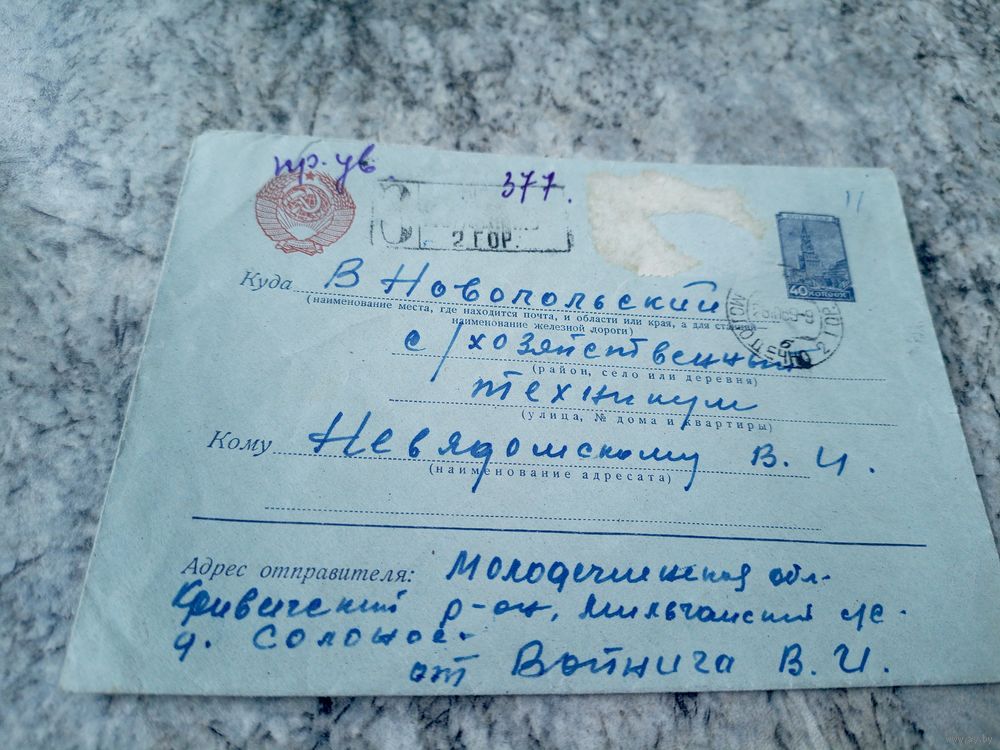 пр. ув.
377.
2 ГОР.
40 КОПЕЕК
МОЛОДЕЧНО 2 ГОР
Куда В Новопольский
(наименование места, где находится почта, и области или края, а для станций
наименование железной дороги)
с/хозяйственный
(район, село или деревня)
техникум
(улица, № дома и квартиры)
Кому Невядомскому В. И.
(наименование адресата)
Адрес отправителя: Молодечненская обл.
Кривичский р-он,
д.
от Войнича В. И.